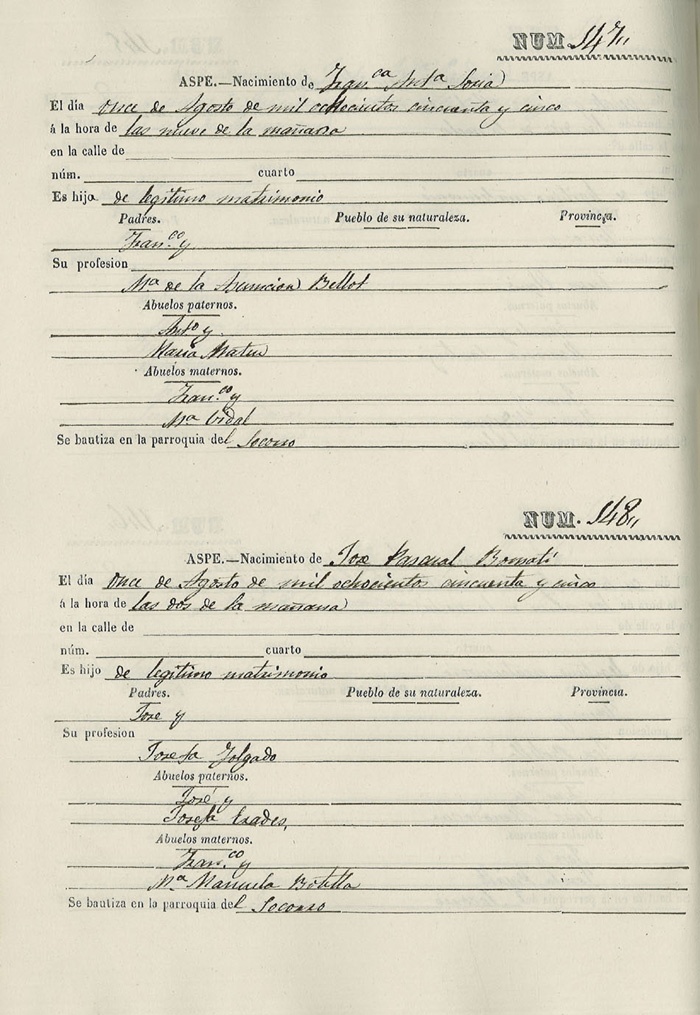 NUM 147
ASPE.—Nacimiento de Fran.ca Ant.a Soria
El día once de Agosto de mil ochocientos cincuenta y cinco
á la hora de las nueve de la mañana
en la calle de
núm. cuarto
Es hija de legitimo matrimonio
Padres. Pueblo de su naturaleza. Provincia.
Fran.co y
Su profesion
M.a de la Asuncion Bellot
Abuelos paternos.
Ant.o y
Maria Mateu
Abuelos maternos.
Fran.co y
M.a Vidal
Se bautiza en la parroquia del Socorro
NUM. 148
ASPE.—Nacimiento de Jose Pascual Bonmatí
El día once de Agosto de mil ochocientos cincuenta y cinco
á la hora de las dos de la mañana
en la calle de
núm. cuarto
Es hijo de legitimo matrimonio
Padres. Pueblo de su naturaleza. Provincia.
Jose y
Su profesion
Josefa Folgado
Abuelos paternos.
José y
Josefa Erades,
Abuelos maternos.
Fran.co y
M.a Manuela Botella
Se bautiza en la parroquia del Socorro